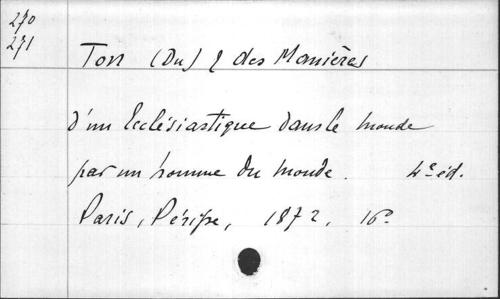 270
271
Ton (Du) & des Manières
d'un Ecclésiastique dans le monde
par un homme du monde. 4e éd.
Paris, Périsse, 1872, 16°